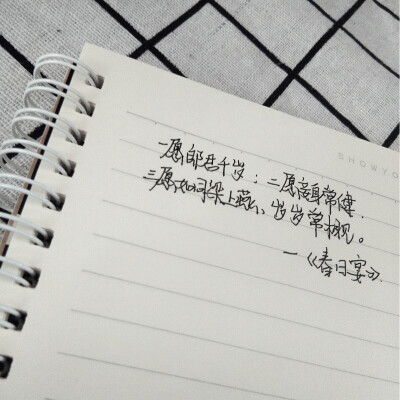 SHOWYO
一愿郎君千岁；二愿妾身常健.
三愿如同梁上燕、岁岁常相见。
一《春日宴》